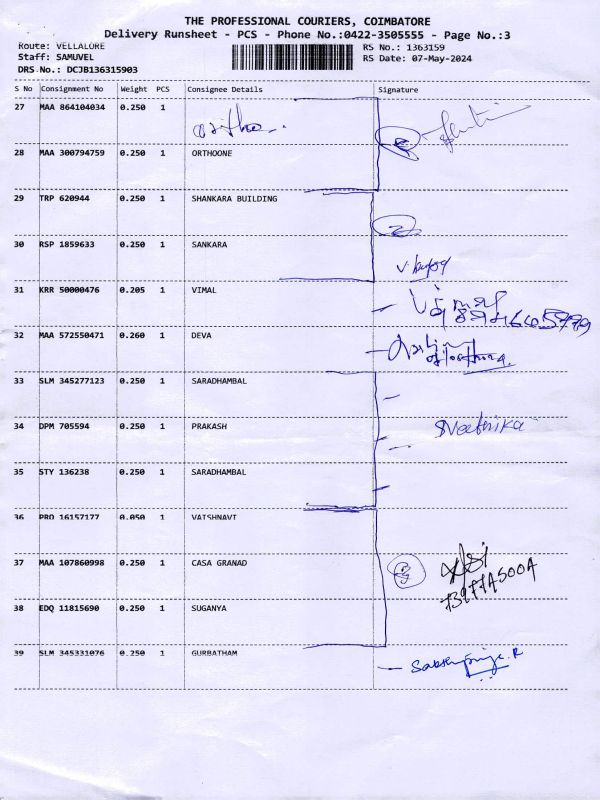 THE PROFESSIONAL COURIERS, COIMBATORE
Delivery Runsheet - PCS - Phone No.:0422-3505555 - Page No.:3
Route: VELLALORE
Staff: SAMUVEL
DRS No.: DCJB136315903
RS No.: 1363159
RS Date: 07-May-2024
S No Consignment No Weight PCS Consignee Details Signature
27 MAA 864104034 0.250 1 ortho
28 MAA 300794759 0.250 1 ORTHOONE
29 TRP 620944 0.250 1 SHANKARA BUILDING
30 RSP 1859633 0.250 1 SANKARA
31 KRR 50000476 0.205 1 VIMAL
32 MAA 572550471 0.260 1 DEVA
33 SLM 345277123 0.250 1 SARADHAMBAL
34 DPM 705594 0.250 1 PRAKASH
35 STY 136238 0.250 1 SARADHAMBAL
36 PRO 16157177 0.050 1 VAISHNAVI
37 MAA 107860998 0.250 1 CASA GRANAD
38 EDQ 11815690 0.250 1 SUGANYA
39 SLM 345331076 0.250 1 GURBATHAM